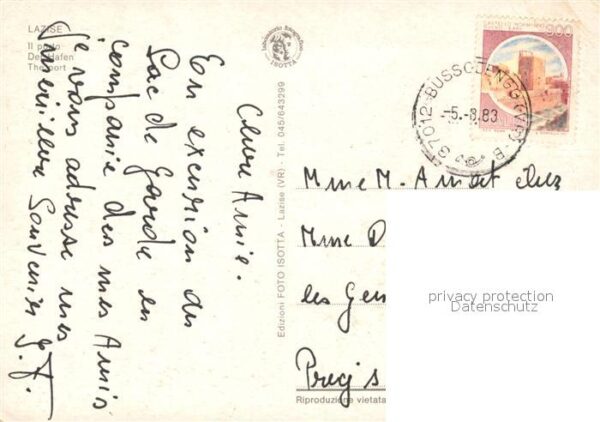 LAZISE
Il porto
Der Hafen
The port
Chère Amie.
En excursion du
Lac de Garde en
compagnie des mes Amis
Je vous adresse mes
Meilleurs Souvenirs
Edizioni FOTO ISOTTA - Lazise (VR) - Tel. 045/643299
ISOTTA
300
37012 BUSSOLENGO (VR) - B
-5.-8.83
Mme M. Amat chez
Mme D
les Gen
Preg s
Riproduzione vietata
privacy protection
Datenschutz